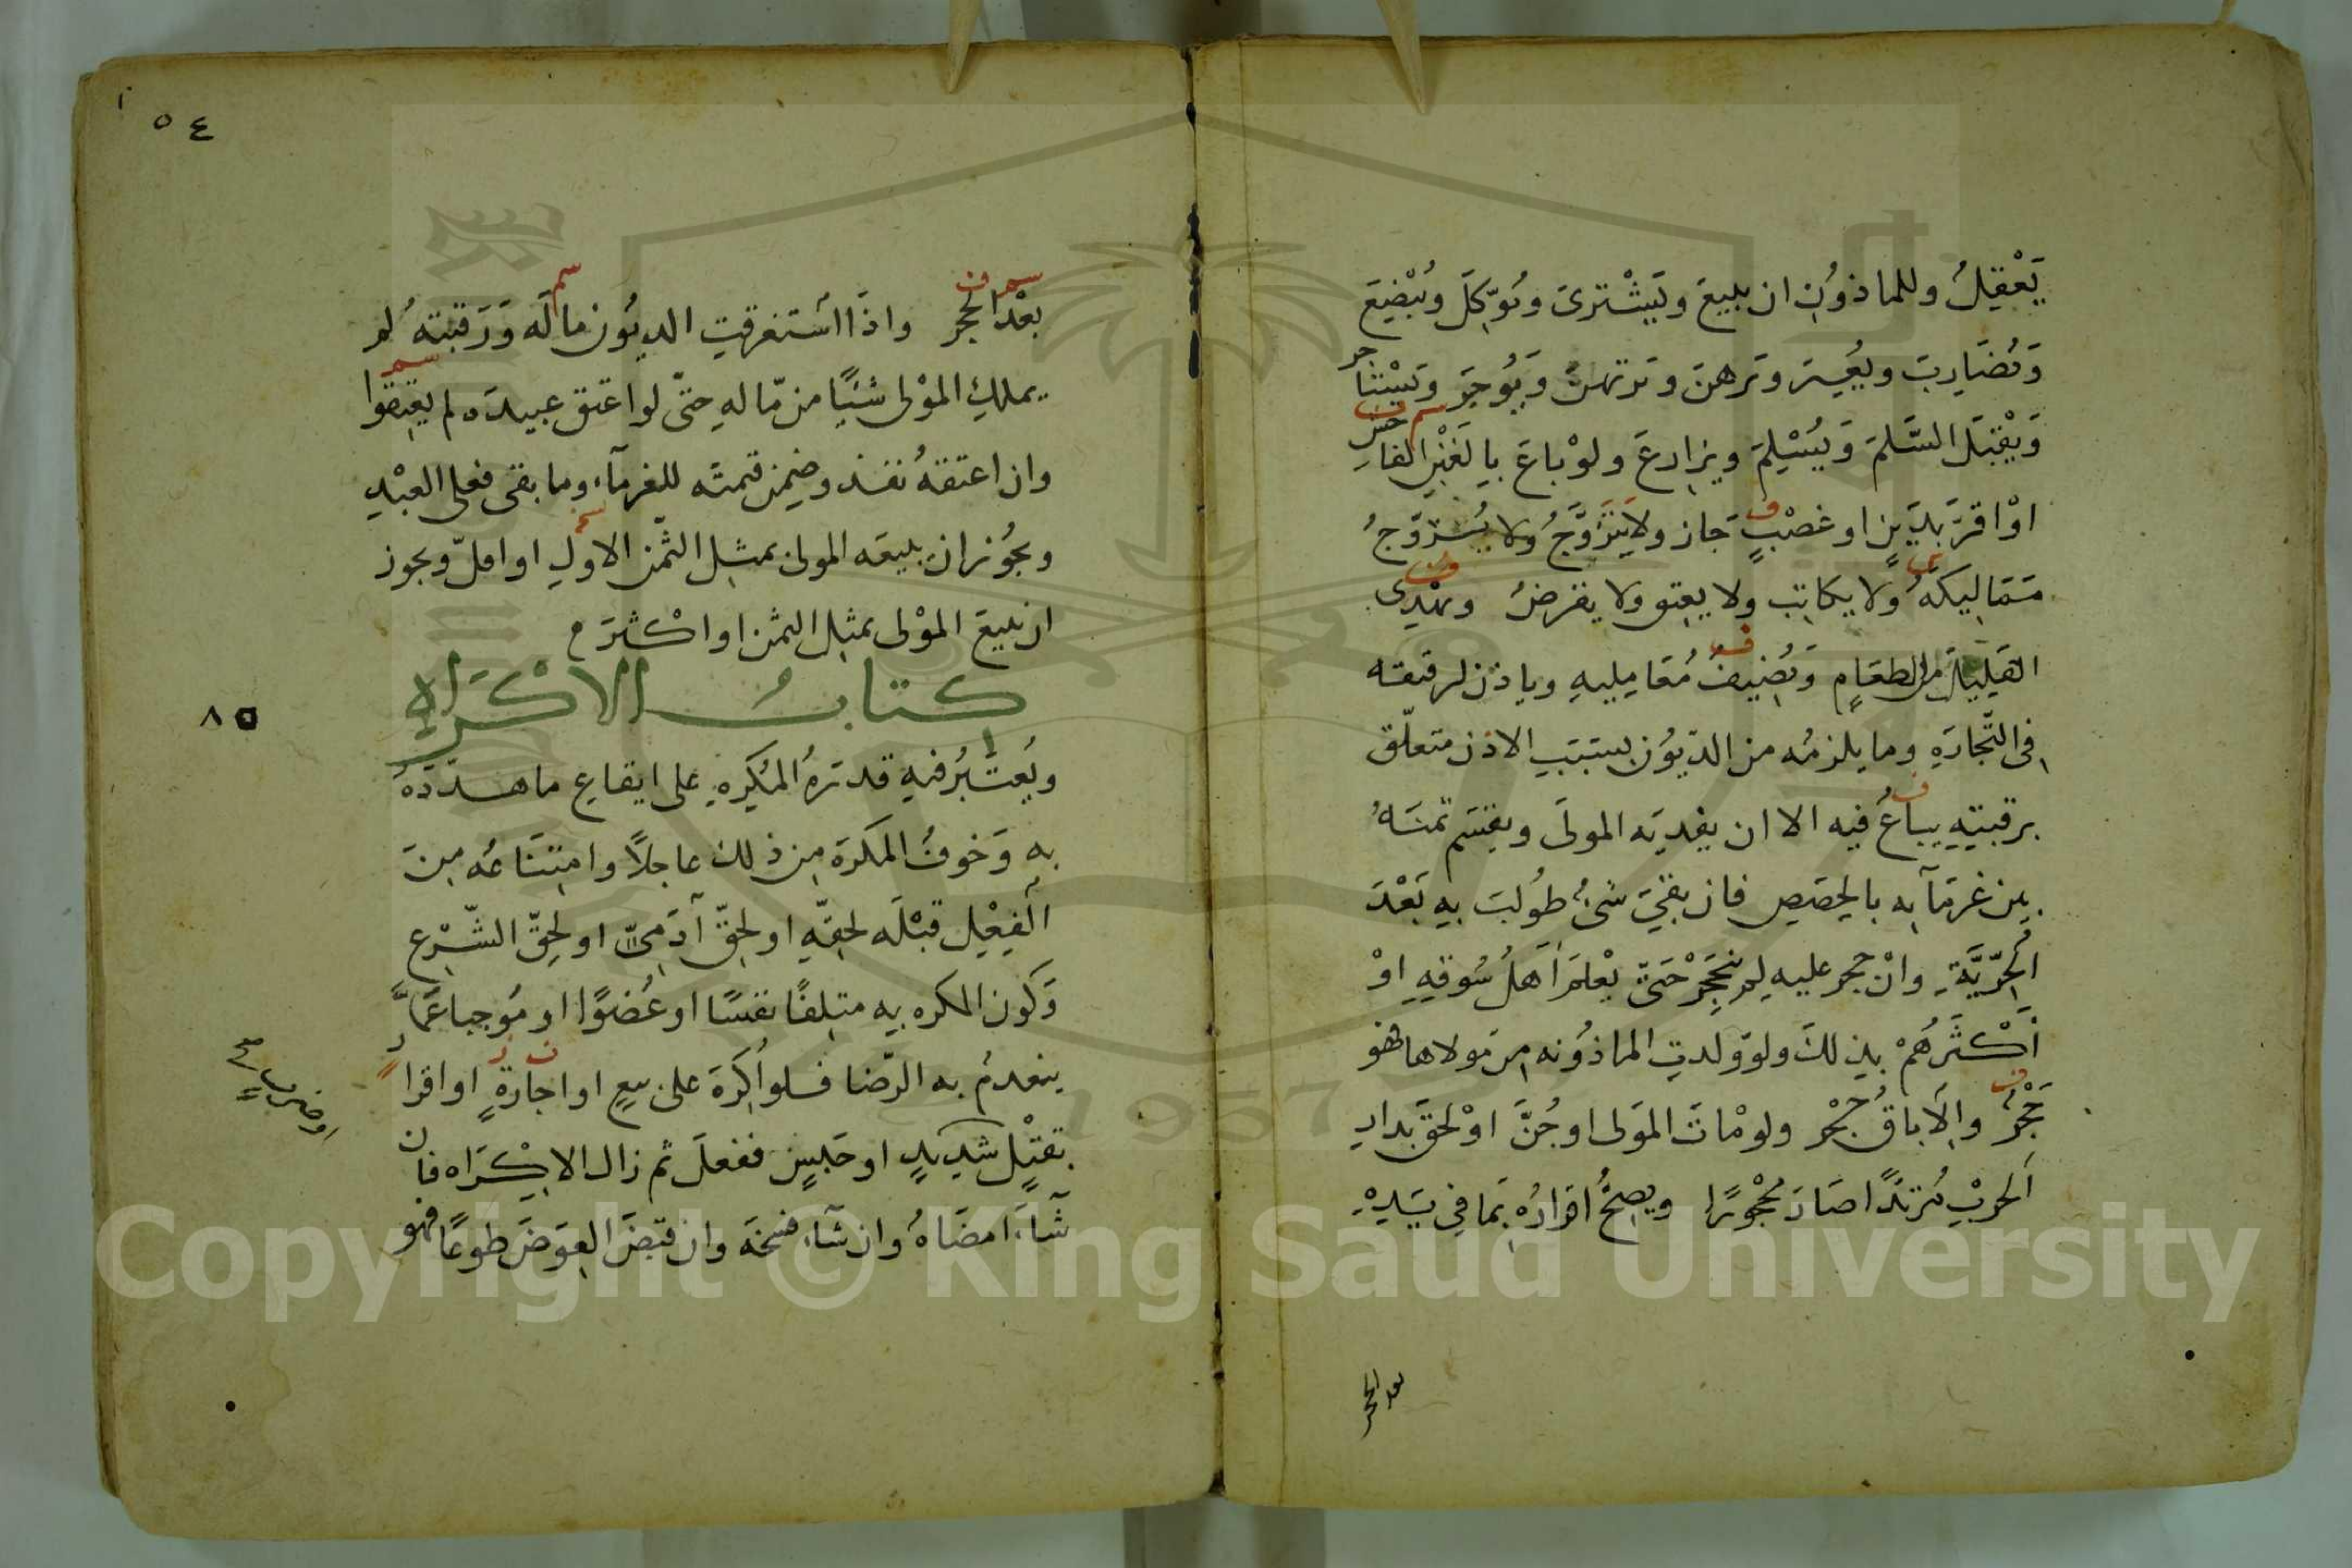 يَعْقِلُ وللماذوُن ان يبيعَ ويَشْترىَ ويُوّكِلَ ويُبْضِعَ
وَيُضَارِبَ ويُعِيرَ ويَرهنَ ويَرتهنَ وَيُوجِرَ ويَسْتاجر
وَيْقبَلَ السَّلمَ وَيُسْلِمَ ويزارعَ ولوْ باعَ بِالغَبْنِ الفاحش
اوْ اقرَّ بِدَينٍ او غصْبٍ جَاز ولا يَتَزَوَّجُ ولا يُزوّجُ
مَمَاليكَهُ ولا يكاتب ولا يعتق ولا يقرضُ ويهْدِى
القلِيلَ من الطعَامِ وَيُضِيفُ مُعَامِليهِ وياذن لرقيقه
فى التّجارَةِ وما يلزمُه من الدّيوُن بسَبَبِ الاذن متعلّق
برقبتِهِ يباعُ فيه الا ان يفديَه المولَى ويقسَم ثمنَهُ
بين غرمَآيه بالحِصَصِ فان بقىَ شىُ طُولبَ بِهِ بَعْدَ
الحُرّيَّةِ وانْ حجر عليه لم ينحَجِرْ حَتىّ يعْلمَ اَهلُ سُوقِهِ اوْ
اَكْثَرَهُمْ بذلكَ ولوّ ولدتِ الماذوُنه من مَولاها فهو
حَجْرُ والِاباقُ حُجْر ولو مْاتَ المَولى او جُنَّ اوْ لحقَ بدارِ
الحَربْ مُرتدًا صَارَ محْجُورًا ويصِحُّ اقرارُهُ بِمَا فِى يَدِهْ
بعد الحجر
٥٤
بعْدَ الحجر واذَا اسْتغرقتِ الديُون ماله وَرَقبتهُ لم
يملكِ الموْلى شيًا من مّالهِ حتّى لو اعتق عبيدَه لم يعتِقوا
وان اعتقهُ نفذ وضمِن قيمتَه للغرمآء وما بقى فعلى العبْدِ
ويجُوز ان يبيعَه المولى بمثلِ الثمّن الاولِ او اقلّ ويجوز
ان يبيعَ الموْلى بمثلِ الثمن او اكْثرَ
كتابُ الاكْرَاهِ
ويُعتْبَرُ فيهِ قدرةُ المُكرِهِ على ايقاعِ ما هدّدَهُ
به وَخوفُ المكرَه من ذلك عاجلاً وامتِنَاعُه مِنَ
الفِعْلِ قبْلَه لحقّهِ او لحقّ آدَمِىّ او لحِقّ الشّرْعِ
وَكَون المكره بِه متلِفًا نفسًا او عُضوًا او مُوجبا غمًّا
ينعدمُ به الرّضا فلو اُكرَهَ على بيعٍ او اجارةٍ او اقرارٍ
بقتْلٍ شديدٍ او حَبسٍ ففعلَ ثم زال الاكْرَاه فان
شآءَ امضَاهُ وان شَآء فسخهَ وان قبَضَ العِوَضَ طوعًا فهو
٨٥
او ضرب